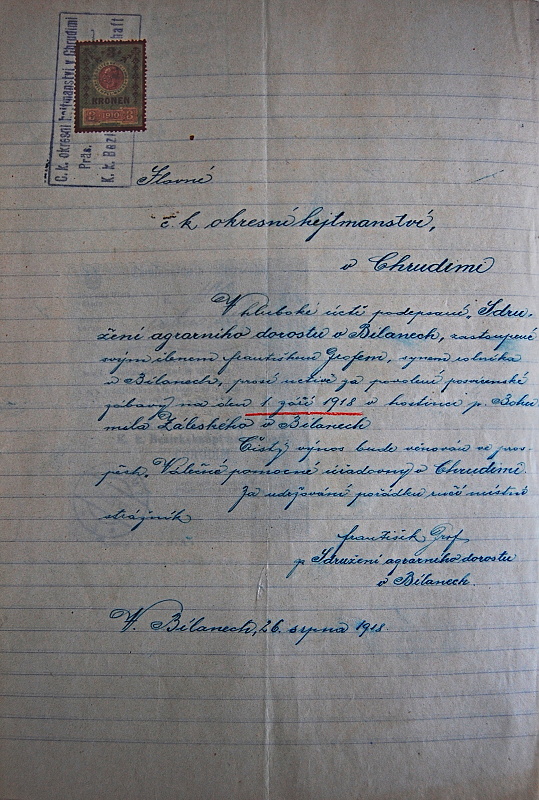 C. k. okresní hejtmanství v Chrudimi
Präs.
K. k. Bezi
haft
3
KRONEN
3 1910 3
Slavné
c. k okresní hejtmanství,
v Chrudimi
V hluboké úctě podepsané, Sdru
žení agrarního dorostu v Bílanech, zastoupené
svým členem františkem Grofem, synem rolníka
v Bílanech, prosí uctivě za povolení posvícenské
zábavy na den 1. září 1918 v hostinci p. Bohu
mila Záleského v Bílanech
Čistý výnos bude věnován ve pros-
pěch. Válečná pomocné úřadovny v Chrudimi
Za udržování pořádku ručí místní
strážník
františek Grof
Sdružení agrarního dorostu
v Bílanech.
V. Bílanech, 26. srpna 1918.